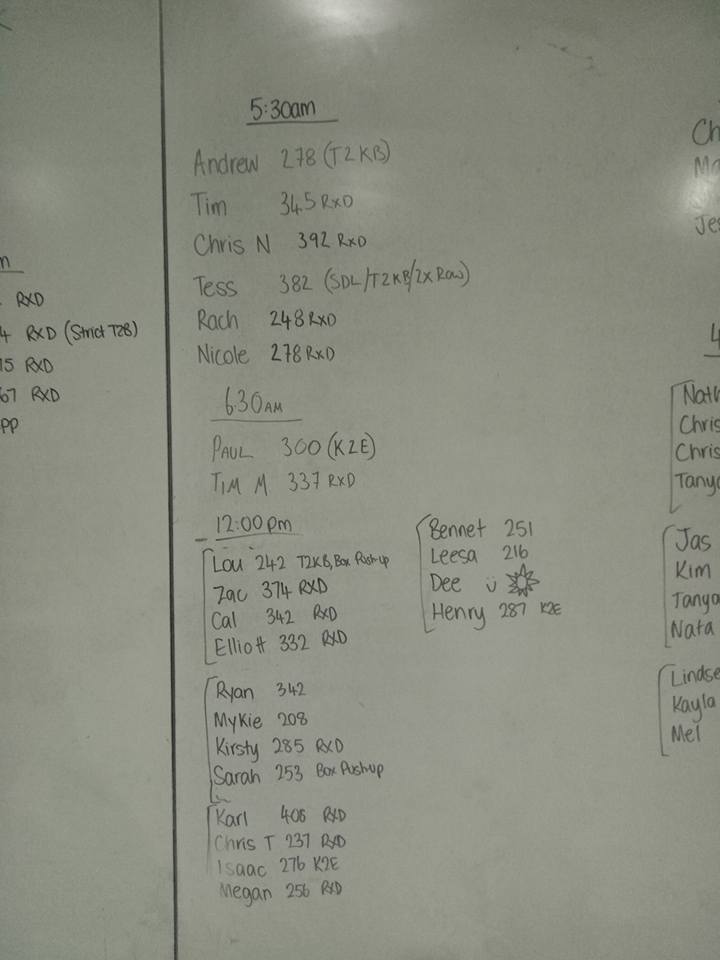 5:30am
Andrew 278 (T2KB)
Tim 345 RXD
Chris N 392 RXD
Tess 382 (SDL/T2KB/2X Row)
Rach 248 RXD
Nicole 278 RXD
6:30AM
PAUL 300 (K2E)
TIM M 337 RXD
12:00pm
Lou 242 T2KB, Box Push up
Zac 374 RXD
Cal 342 RXD
Elliott 332 RXD
Ryan 342
Mykie 208
Kirsty 285 RXD
Sarah 253 Box Push up
Karl 406 RXD
Chris T 237 RXD
Isaac 276 K2E
Megan 256 RXD
Bennet 251
Leesa 216
Dee ü
Henry 287 K2E
RXD
4 RXD (Strict T2B)
15 RXD
67 RXD
PP
Ch
Ma
Jes
4
Nath
Chris
Chris
Tanya
Jas
Kim
Tanya
Nata
Lindse
Kayla
Mel